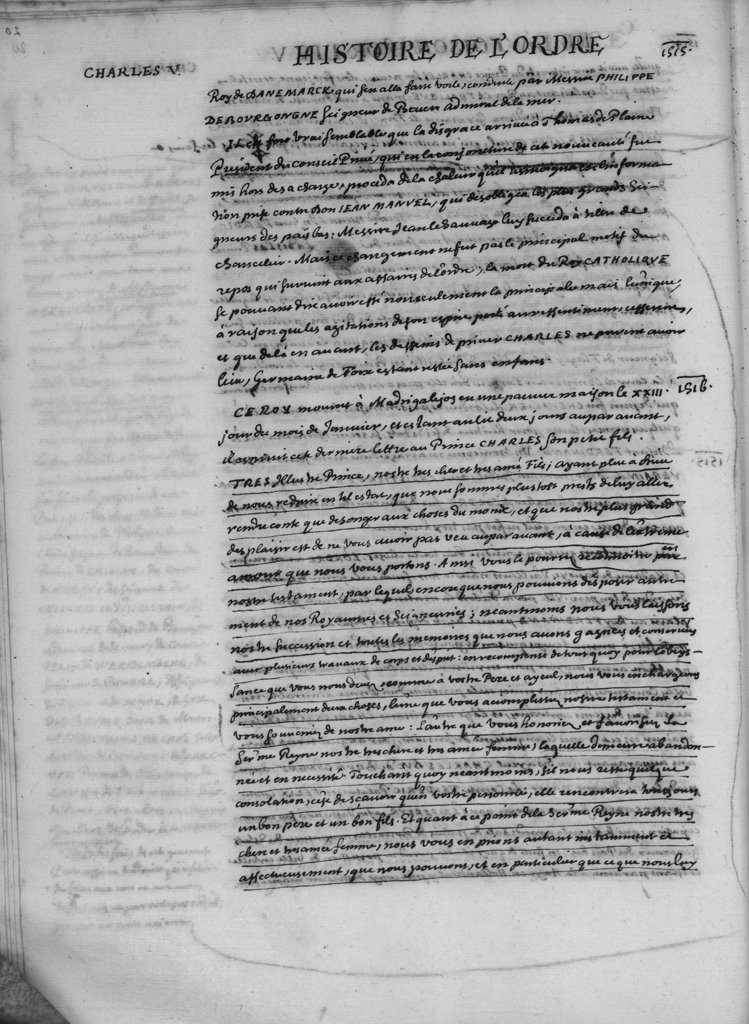 HISTOIRE DE L'ORDRE
1515.
CHARLES V.
Roy de DANEMARCK qui s'en alla faire voile, conduite par Messire PHILIPPE
DE BOURGONGNE Seigneur de Bevere Admiral de la mer.
Il est fort vraisemblable que la disgrace arrivée à Thomas de Plaine
President du Conseil Privé, qui en la conjoncture de cet nouveauté fut
mis hors de sa charge, proceda de la chaleur qu'il en l'informa
tion prise contre Don JEAN MANVEL, qui desobligea les plus grands Sei-
gneurs des païsbas: Messire Jean le Sauvage luy succeda à tiltre de
Chancelier. Mais ce changement ne fut pas le principal motif du
repos qui survint aux affaires de l'ordre, la mort du Roy CATHOLIQVE
se pouvant dire avoir esté non seulement la principale mais l'unique,
à raison que les agitations de son esprit porté au ressentiment, cesserent,
et que de là en avant, les desseins de priver CHARLES ne peurent avoir
lieu, Germaine de Foix estant restée sans enfans.
CE ROY mourut à Madrigalejos en une pauvre maison le XXIII.
1516.
jour du mois de Janvier, et estant au lit deux jours auparavant,
il escrivit cet derniere lettre au Prince CHARLES son petit fils.
TRES Illustre Prince, nostre tres cher et tres amé Fils, ayant pleu à Dieu
de nous reduire en tel estat, que nous sommes plustost prests de luy aller
rendre conte que de songer aux choses du monde, et que nostre plus grand
desplaisir est de ne vous avoir pas veu auparavant, à cause de l'extreme
amour que nous vous portons. Ainsi vous le pourrez par
1515.
nostre testament, par lequel, encor que nous pouvions disposer autre
ment de nos Royaumes et Seigneuries; neantmoins nous vous laissons
nostre succession et toutes les memoires que nous avons gagnées et conservées
avec plusieurs travaux de corps et d'esprit: en recompense de tout quoy pour l'obeys-
sance que vous nous devez, comme à vostre Pere et ayeul, nous vous enchargeons
principalement deux choses, l'une que vous accomplissiez nostre testament et
vous souveniez de nostre ame: L'autre que vous honoriez et favorisiez la
Ser.me Reyne nostre tres chere et tres amée femme, laquelle demeure abandon-
née et en necessité. Touchant quoy neantmoins, s'il nous reste quelque
consolation, c'est de sçavoir qu'en vostre personne, elle rencontrera tousjours
un bon père et un bon fils. Et quant à ce point de la Ser.me Reyne nostre tres
chere et tres amée femme, nous vous en prions autant instamment et
affectueusement, que nous pouvons, et en particulier que ce que nous luy